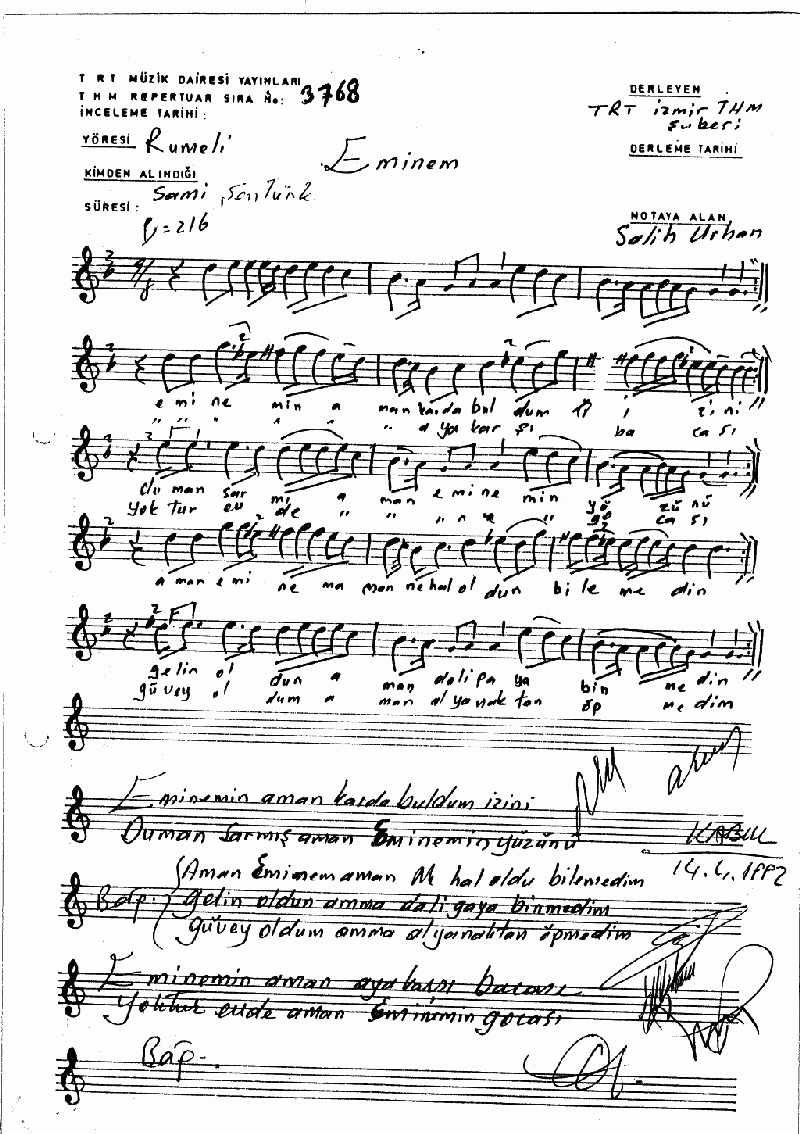 T R T MÜZİK DAİRESİ YAYINLARI
T H M REPERTUAR SIRA No: 3768
İNCELEME TARİHİ :
YÖRESİ Rumeli
KİMDEN ALINDIĞI
Sami Şentürk
SÜRESİ :
= 216
Eminem
DERLEYEN
TRT izmir THM
Şubesi
DERLEME TARİHİ
NOTAYA ALAN
Salih Urhan
9/8
e mi ne min a man karda bul dum i zi ni
" " " " " " a ya kar şı ba ca sı
du man sar mı a man e mi ne min yü zü nü
yok tur ev de " " " " " " go ca sı
a man e mi ne m a man ne hal ol dun bi le me din
gelin ol dun a man deli pa ya bin me din
güvey ol dum a man al yanak tan öp me dim
Eminemin aman karda buldum izini
Duman Sarmış aman Eminemin yüzünü
Bağ. Aman Eminem aman hal oldu bilemedim
gelin oldun amma dali gaya binmedim
güvey oldum amma alyanaktan öpmedim
Eminemin aman aya karşı bacası
Yoktur evde aman Eminemin gocası
Bağ.
KABUL
14.4.1992